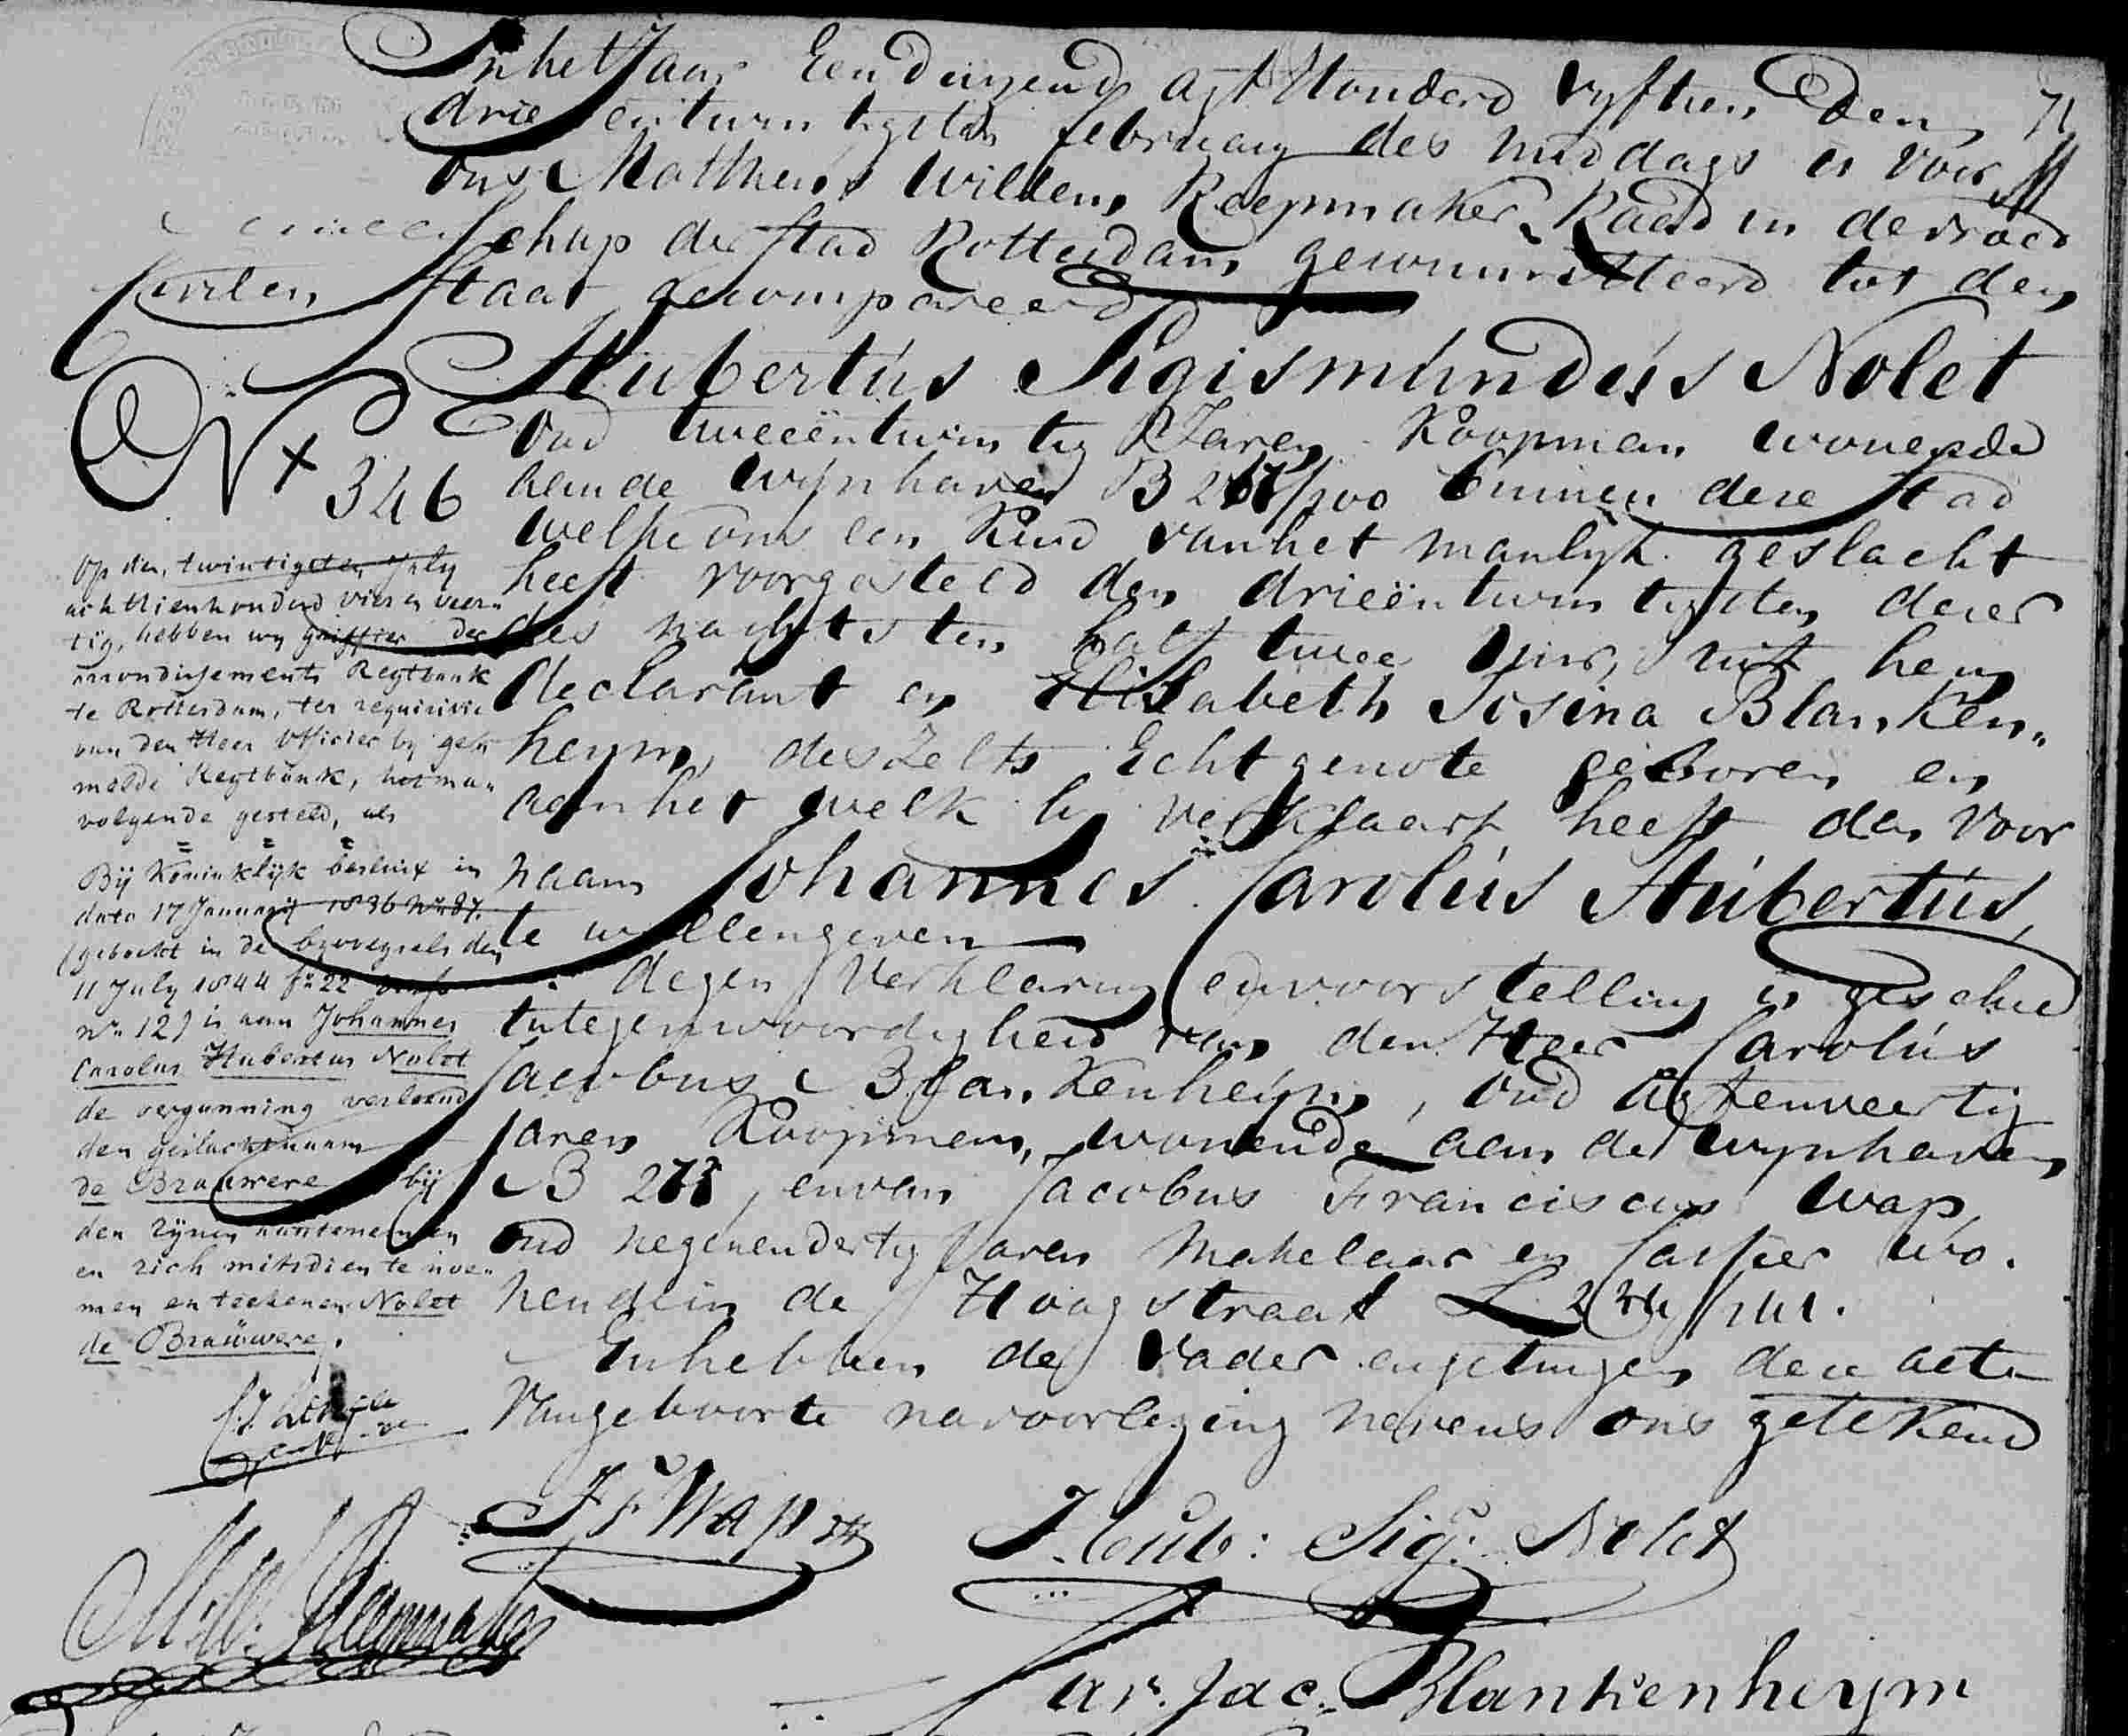 71
In het Jaar Eenduizend agt Honderd vyftien den
drie entwintigsten february des middags is voor
ons Mattheus Willem Reepmaker Raad in de vroed
schap der stad Rotterdam gecommitteerd tot den
Civilen Staat gecompareerd
Hubertus Sigismundus Nolet
Oud tweeëntwintig Jaren Koopman wonende
aan de wynhaven B binnen deze Stad
welke ons een Kind van het manlyk geslacht
heeft voorgesteld den drieëntwintigsten dezer
des nachts ten half twee uur, uit hem
declarant en Elisabeth Josina Blanken„
heym, deszelfs Echtgenote geboren en
aan het welk hy verklaart heeft den voor
naam Johannes Carolus Hubertus,
te willen geven
degen verklaring en voorstelling is geschied
in tegenwoordigheid van den Heer Carolus
Jacobus Blankenheijm, oud agtenveertig
jaren Koopman, wonende aan de wynhaven
B en van Jacobus Franciscus Wap,
oud negenendertig Jaren Makelaar en wo.
hende in de Hoogstraat L
En hebben de vader en getuigen deze acte
van geboorte na voorlezing nevens ons getekend
N 346
Op den twintigsten July
achttienhonderd vier en veer„
tig, hebben wy griffier der
arrondissements Regtbank
te Rotterdam, ter requisitie
van den Heer Officier by geln
melde Regtbank, het na„
volgende gesteld, als
Bij Koninklijk besluit in
dato 17 January 1836 No 87.
(geboekt in de den
11 July 1844 fo 22
no 12) is aan Johannes
Carolus Hubertus Nolet
de vergunning verleend
den geslachtsnaam
de Brauwere bij
den zynen aantenemen
en zich mitsdien te noe„
men en teekenen Nolet
de Brauwere.
J F Wap
Hub: Sig: Nolet
M: W: Reepmaker
Car. Jac. Blankenheym